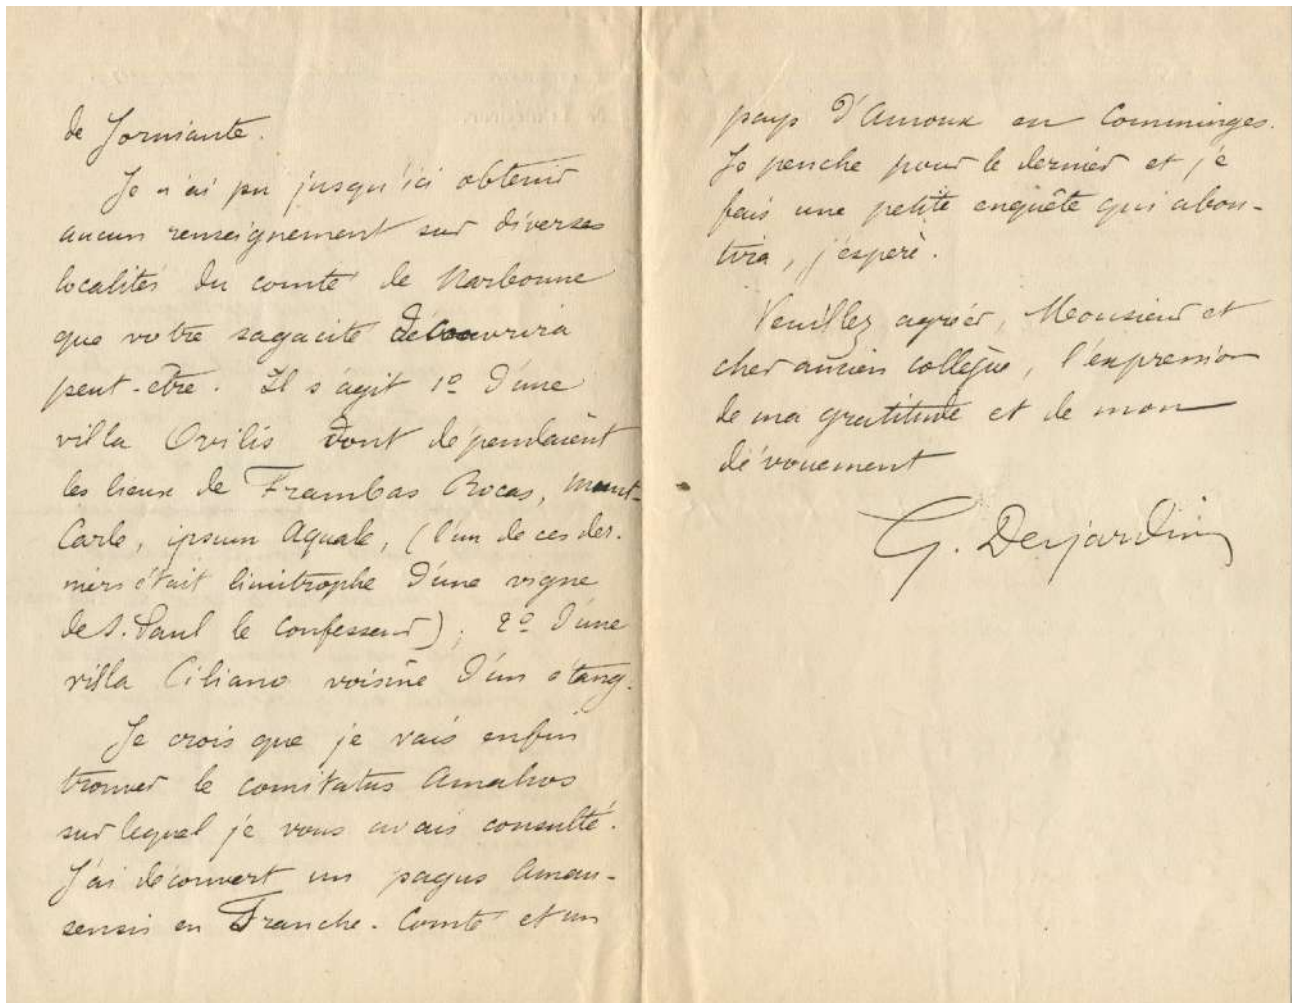 de Jorniante.
Je n'ai pu jusqu'ici obtenir
aucun renseignement sur diverses
localités du comté de Narbonne
que votre sagacité découvrira
peut-être. Il s'agit 1º d'une
villa Ovilis dont dépendaient
les lieux de Frambas Rocas, Mont-
Carle, ipsum Aquale, (l'un de ces der-
niers était limitrophe d'une vigne
de S. Paul le Confesseur) ; 2º d'une
villa Ciliano voisine d'un étang.
Je crois que je vais enfin
trouver le comitatus Amahvs
sur lequel je vous avais consulté.
J'ai découvert un pagus Aman-
sensis en Franche-Comté et un
pays d'Amoux en Comminges.
Je penche pour le dernier et je
fais une petite enquête qui abou-
tira, j'espère.
Veuillez agréer, Monsieur et
cher ancien collègue, l'expression
de ma gratitude et de mon
dévouement
G. Desjardins